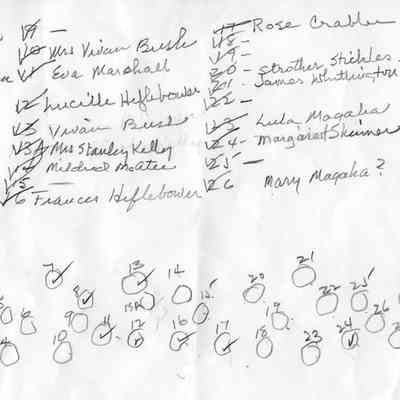 9 -
10 Mrs Vivian Bush
11 Eva Marshall
12 Lucille Heflebower
13 Vivain Bush
13A Mrs Stanley Kelley
14 Mildred McAtee
15 -
16 Frances Heflebower
17 Rose Crabler
18 -
19 -
20 - Strother Stickles
21 - James Whittington
22 -
23 Lula Magaha
24 - Margaret Skinner
25 -
26 Mary Magaha ?
7 8 9 10 11 12 13 13A 14 15 16 17 18 19 20 21 22 23 24 25 26